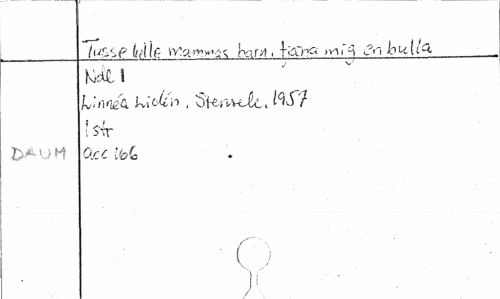 Tusse lulle mammas barn, tjäna mig en bulla
Nde 1
Linnéa Lidén, Stensele, 1957
1 str
DAUM acc 166